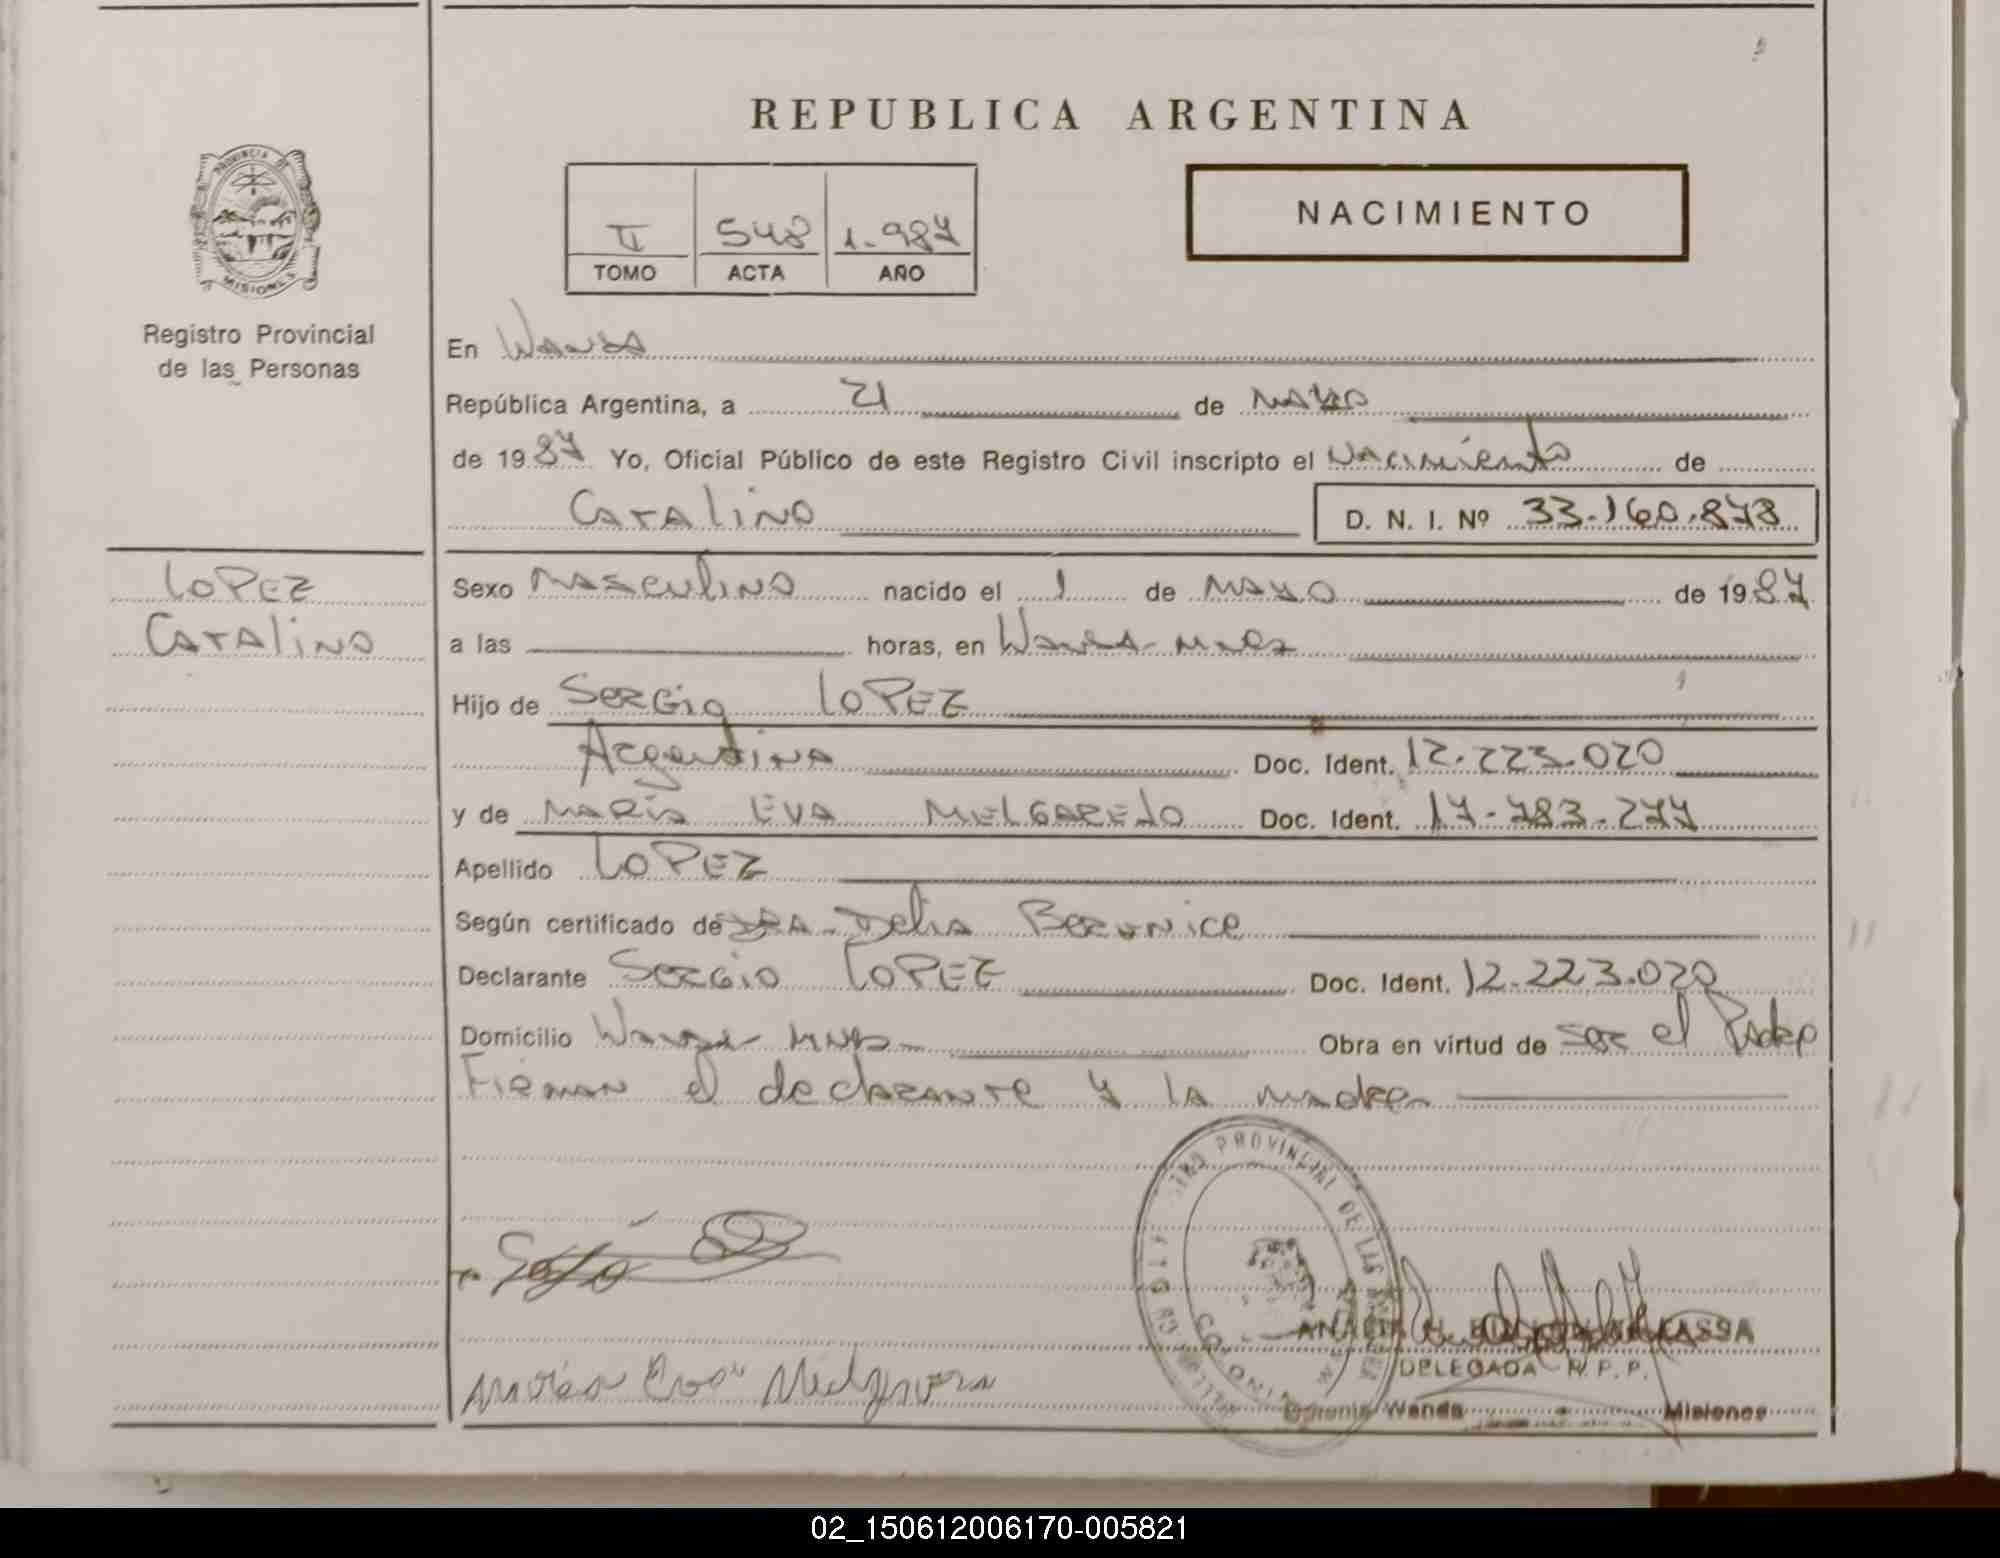 REPUBLICA ARGENTINA
PROVINCIA DE
MISIONES
Registro Provincial
de las Personas
II 548 1.987
TOMO ACTA AÑO
NACIMIENTO
En Wanda
República Argentina, a 21 de Mayo
de 1987 Yo, Oficial Público de este Registro Civil inscripto el Nacimiento de
Catalino D. N. I. Nº 33.160.873
LOPEZ
Catalino
Sexo Masculino nacido el 1 de Mayo de 1987
a las horas, en Wanda-Mnes
Hijo de Sergio LOPEZ
Argentina Doc. Ident. 12.223.020
y de MARÍA EVA MELGAREJO Doc. Ident. 17.783.277
Apellido LOPEZ
Según certificado de DRA. Delia
Declarante Sergio LOPEZ Doc. Ident. 12.223.020
Domicilio Wanda Mnes Obra en virtud de ser el Padre
Firman el declarante y la madre
PROVINCIAL DE LAS
DELEGADA R. P. P.
María Eva
Wanda Misiones
02_150612006170-005821